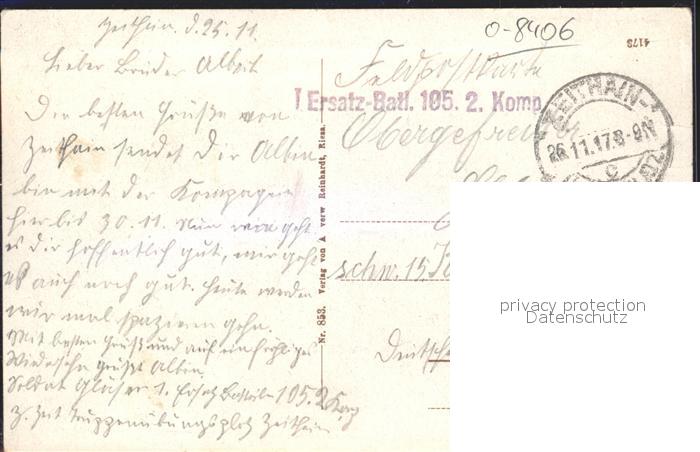 Zeithain, d. 25.11.
Lieber Bruder Albert
Die besten Grüße von
Zeithain sendet Dir Albin
bin mit der Kompagnie
hier bis 30.11. Nun wie geht
es dir hoffentlich gut, mir geht
es auch noch gut. Heute werden
wir mal spazieren gehn.
Mit besten Gruß und auf ein fröhliges
Wiedersehn grüßt Albin.
Soldat Gläser 1. Ersatz Bataillon 105. 2 Komp
z. Zeit Truppenübungsplatz Zeithain
Nr. 853. Verlag von A verw Reinhardt, Riesa.
0-8406
4173
Feldpostkarte
I Ersatz-Batl. 105. 2. Komp.
ZEITHAIN
26.11.17.8-9N
c
Obergefrei
schw. 15
Deutsche
privacy protection
Datenschutz